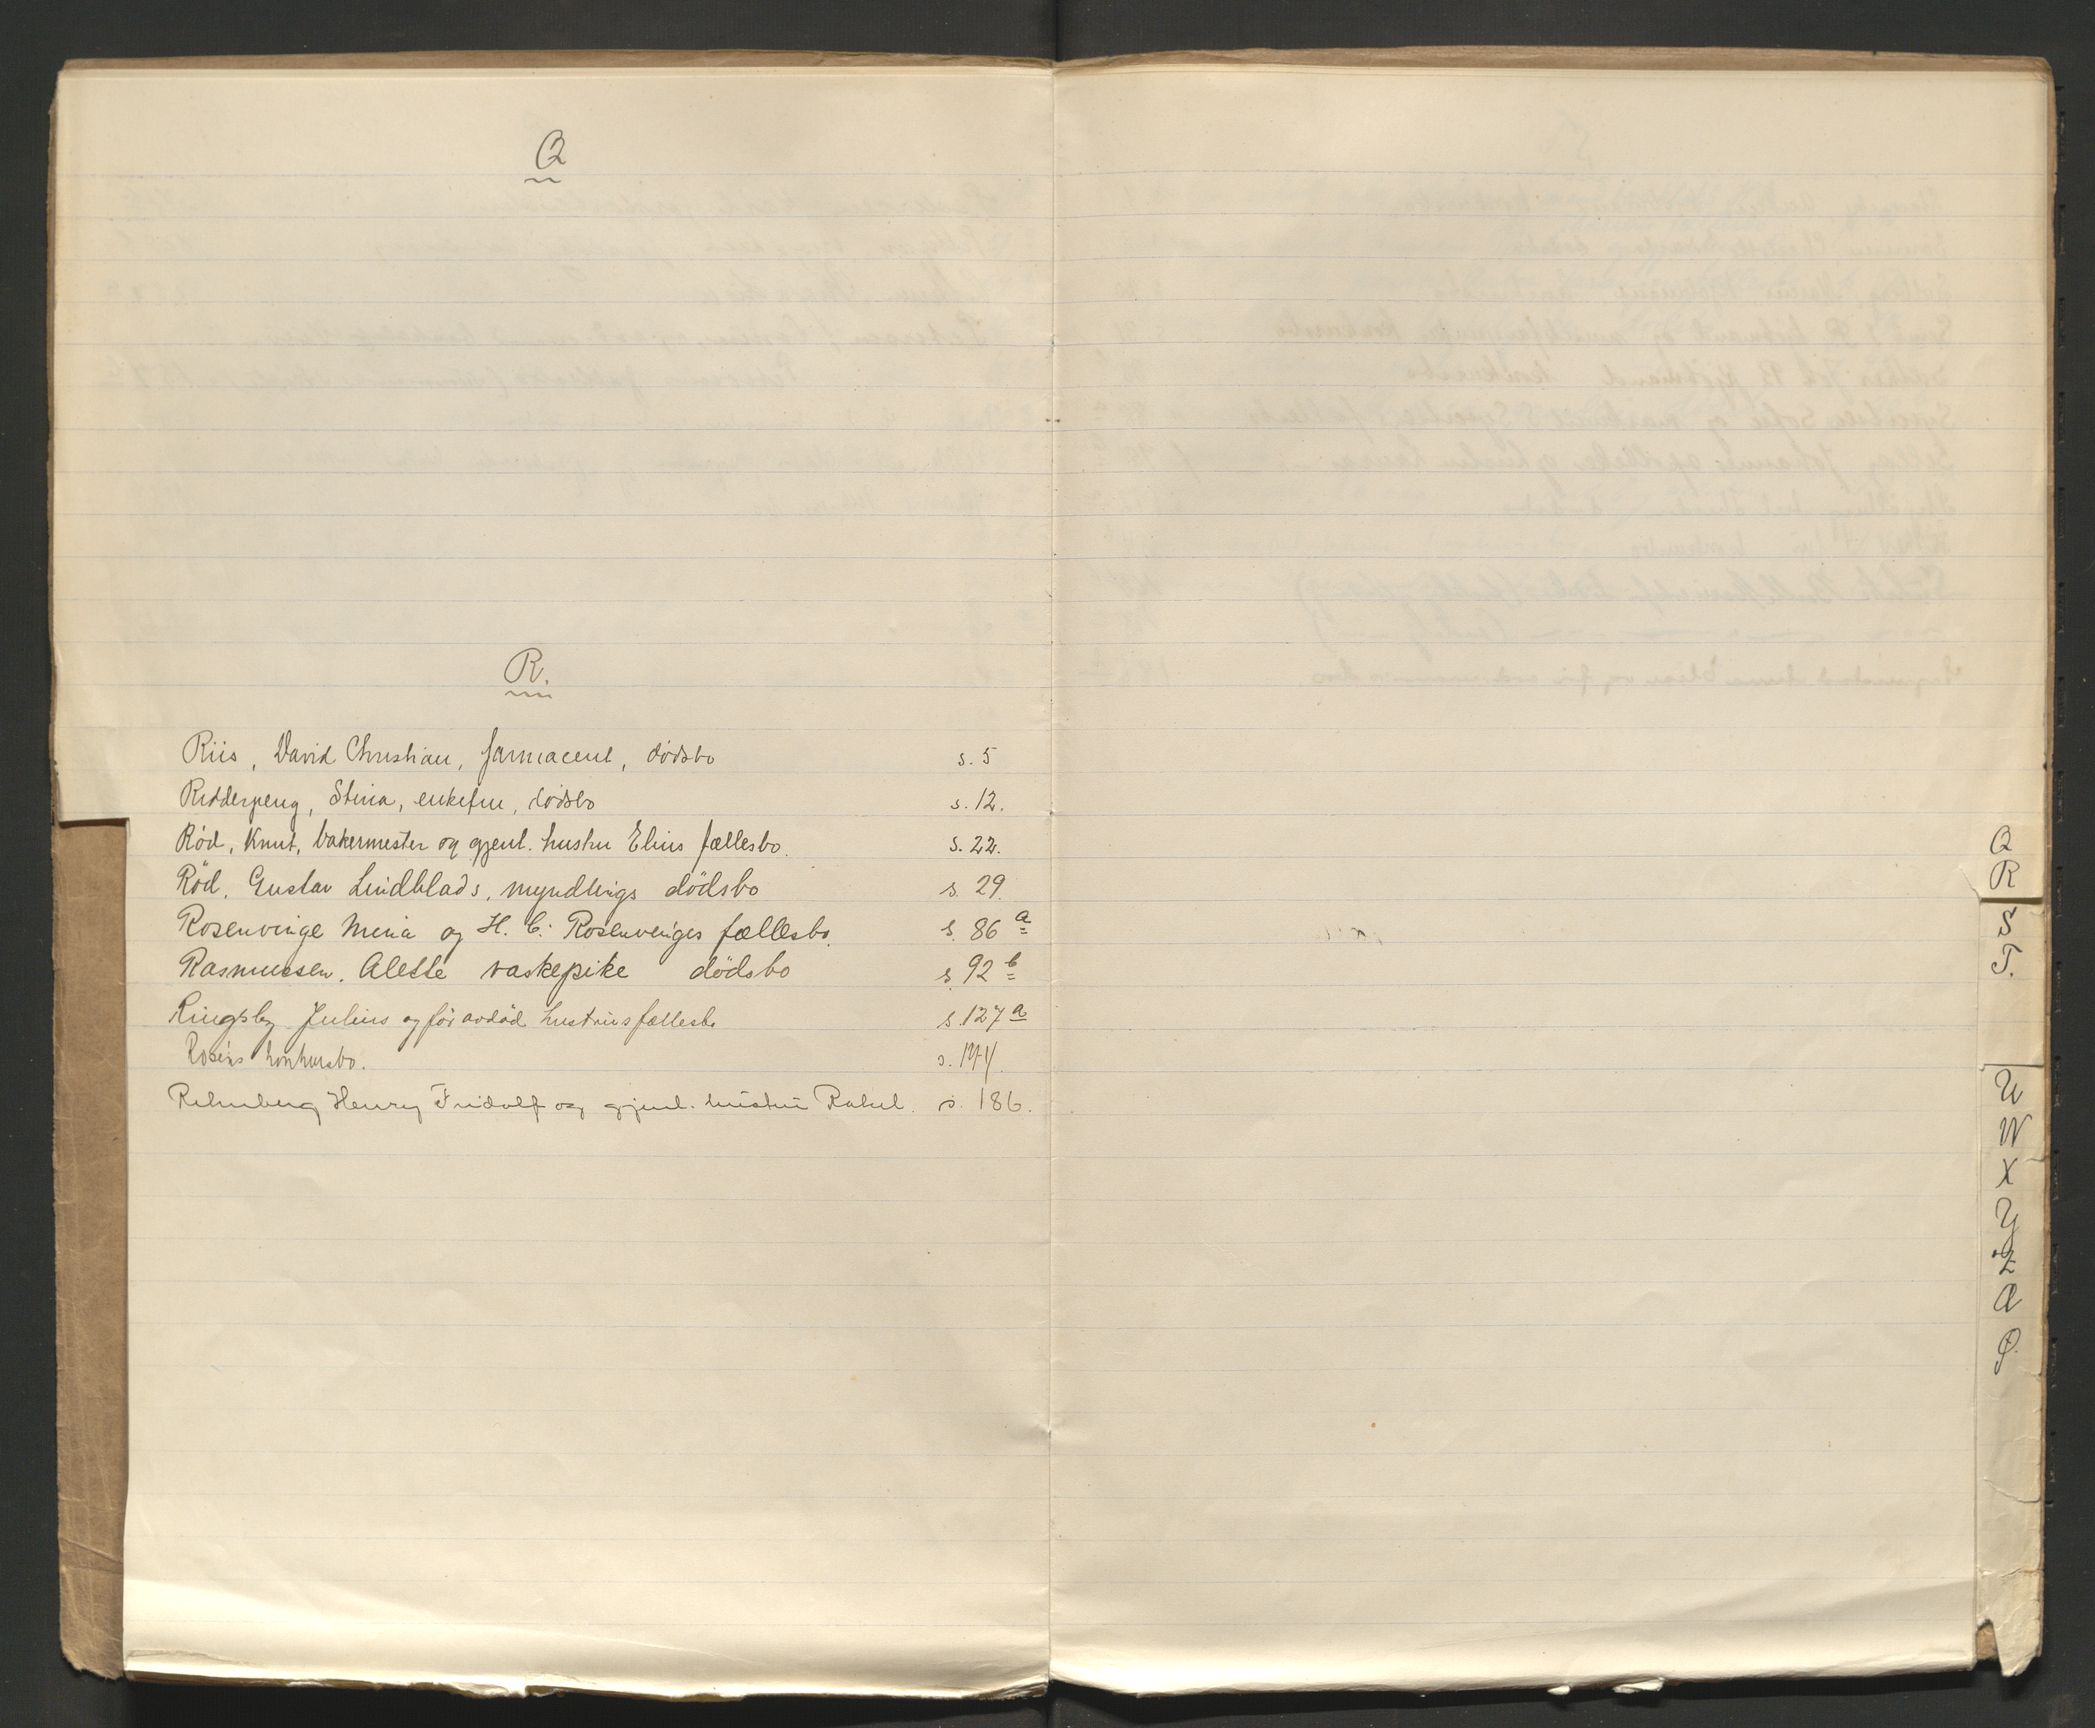 Q
R.
Riis, David Christian, farmaceut, dødsbo s. 5
Ridderpeng, Stina, enkefru, dødsbo s. 12.
Rød, Knut, bakermester og gjenl. hustru Elins fællesbo. s. 22.
Röd, Gustav Lindblads, myndlings dödsbo s. 29.
Rosenvinge Mina og H. C. Rosenvinges fællesbo. s. 86 a
Rasmussen. Alette vaskepike dödsbo s. 92 b
Ringsby Julius og før avdød hustrus fællesbo s. 127 a
Roséns konkursbo. s.
Henry Fridolf og gjenl. hustru Rakel. s. 186.
Q
R
S
T.
U
W
X
Y
Z
Æ
Ø.